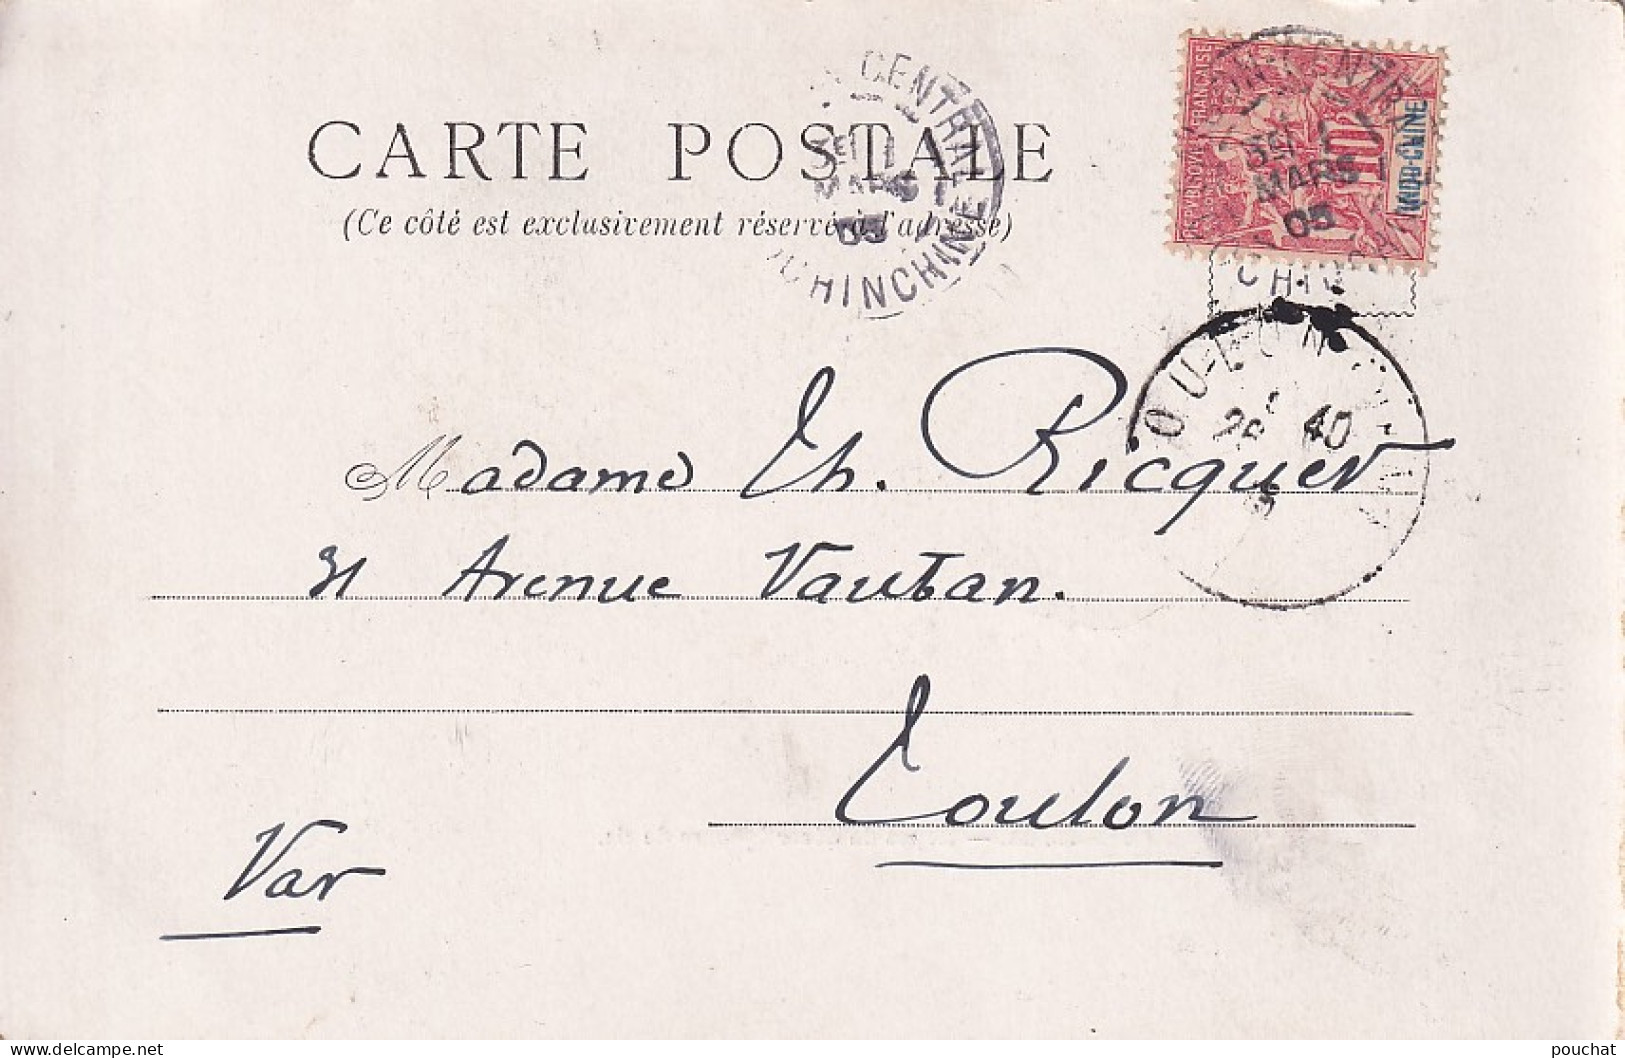 CARTE POSTALE
(Ce côté est exclusivement réservé à l'adresse)
CENTRALE
1
MARS
05
COCHINCHINE
RÉPUBLIQUE FRANÇAISE
10
INDO-CHINE
MARS
05
TOULON-S-MER
40
VAR
Madame Th. Ricquer
31 Avenue Vauban.
Toulon
Var
pouchat